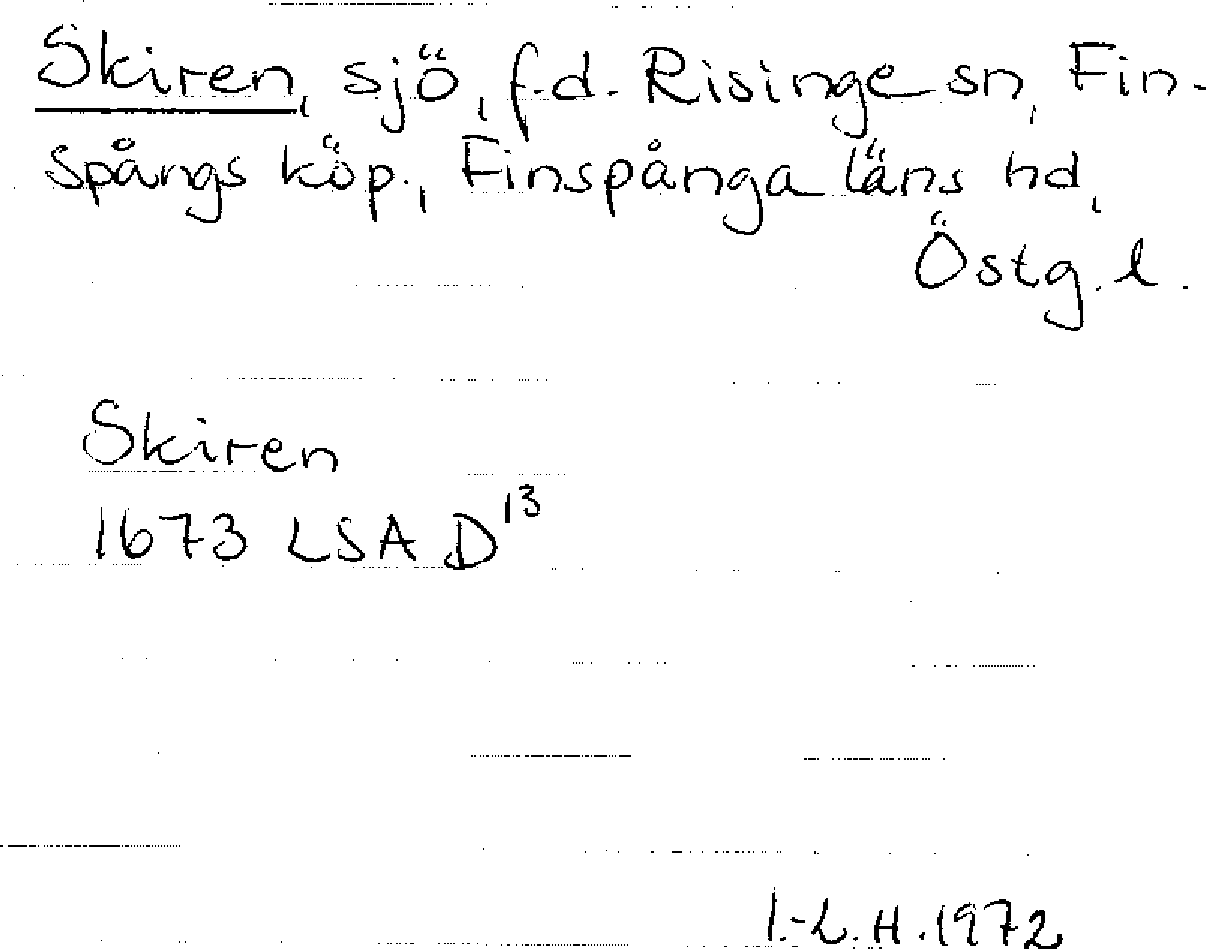 Skiren, sjö, f.d. Risinge sn, Fin-
spångs köp., Finspånga läns hd,
Östg. l.
Skiren
1673 LSA D13
I.-L. H. 1972